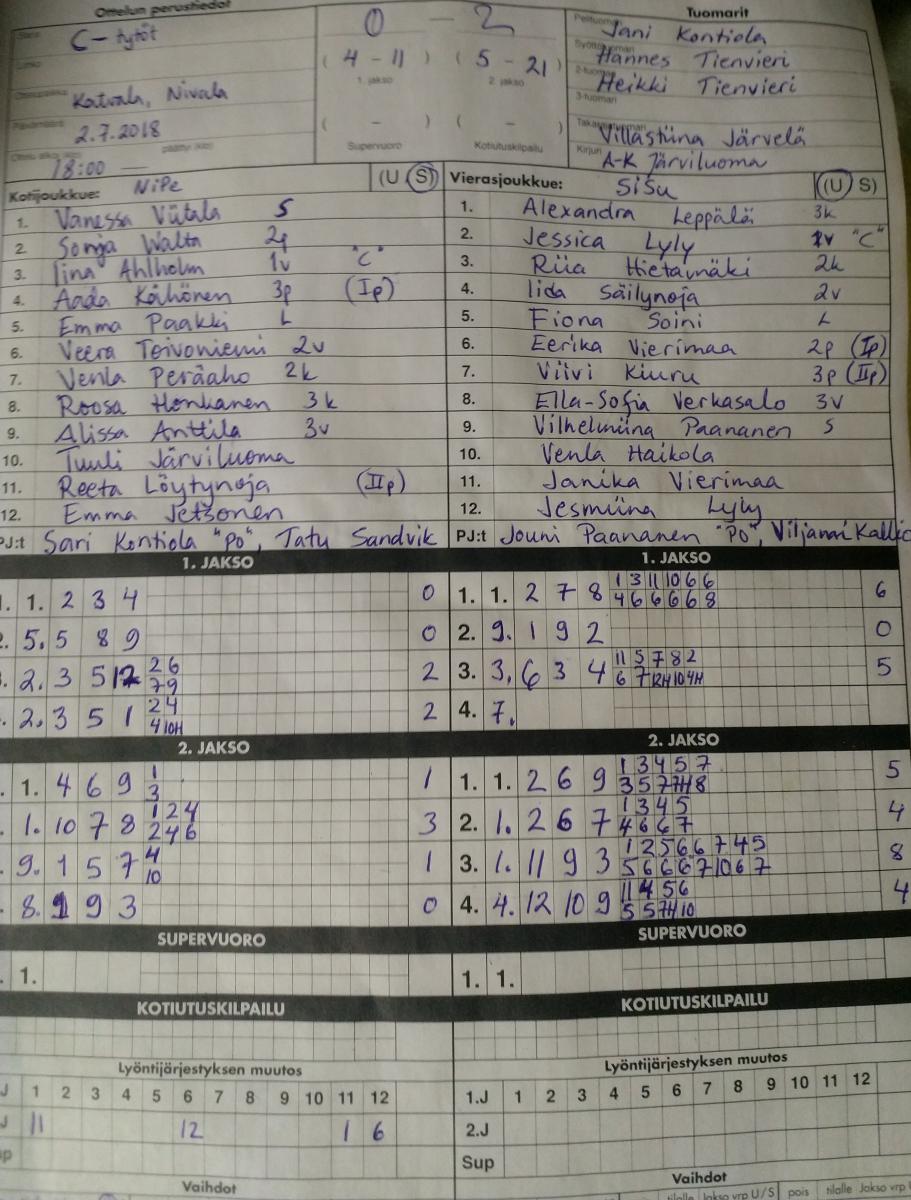 Ottelun perustiedot
Tuomarit
Sarja C-tytöt
0 - 2
Pelituomari Jani Kontiola
Lohko
(4 - 11) (5 - 21)
Syöttötuomari Hannes Tienvieri
1. jakso 2. jakso
2-tuomari Heikki Tienvieri
Ottelupaikka Katvala, Nivala
3-tuomari
Päivämäärä 2.7.2018
( - ) ( - )
Takatuomari Villastiina Järvelä
18:00 päättyi (klo)
Supervuoro Kotiutuskilpailu
Kirjuri A-K Järviluoma
Kotijoukkue: NiPe (U S)
Vierasjoukkue: SiSu (U S)
1. Vanessa Viitala S
1. Alexandra Leppälä 3k
2. Sonja Walta 2p
2. Jessica Lyly 1v "C"
3. Iina Ahlholm 1v "C"
3. Riia Hietamäki 2k
4. Aada Kähönen 3p (Ip)
4. Iida Säilynoja 2v
5. Emma Paakki L
5. Fiona Soini L
6. Veera Toivoniemi 2v
6. Eerika Vierimaa 2p (Ip)
7. Venla Peräaho 2k
7. Viivi Kiuru 3p (IIp)
8. Roosa Honkanen 3k
8. Ella-Sofia Verkasalo 3v
9. Alissa Anttila 3v
9. Vilhelmiina Paananen S
10. Tuuli Järviluoma
10. Venla Haikola
11. Reeta Löytynoja (IIp)
11. Janika Vierimaa
12. Emma Jetsonen
12. Jesmiina Lyly
PJ:t Sari Kontiola "PO", Tatu Sandvik
PJ:t Jouni Paananen "PO", Viljami Kallio
1. JAKSO
1. JAKSO
1. 1. 2 3 4 0
1. 1. 2 7 8 1 3 11 10 6 6 6
4 6 6 6 6 8
2. 5. 5 8 9 0
2. 9. 1 9 2 0
3. 2. 3 5 12 2 6 2
7 9
3. 3. 6 3 4 11 5 7 8 2 5
6 7 12H 10 4H
2. 3 5 1 2 4 2
4 10H
4. 7.
2. JAKSO
2. JAKSO
1. 4 6 9 1 1
3
1. 1. 2 6 9 1 3 4 5 7 5
3 5 7 7H 8
1. 10 7 8 1 2 4 3
2 4 6
2. 1. 2 6 7 1 3 4 5 4
4 6 6 7
9. 1 5 7 4 1
10
3. 1. 11 9 3 1 2 5 6 6 7 4 5 8
5 6 6 6 7 10 6 7
8. 1 9 3 0
4. 4. 12 10 9 11 4 5 6 4
5 5 7H 10
SUPERVUORO
SUPERVUORO
1.
1. 1.
KOTIUTUSKILPAILU
KOTIUTUSKILPAILU
Lyöntijärjestyksen muutos
Lyöntijärjestyksen muutos
J 1 2 3 4 5 6 7 8 9 10 11 12
1.J 1 2 3 4 5 6 7 8 9 10 11 12
J 11 12 1 6
2.J
Sup
Vaihdot
Vaihdot
tilalle Jakso vrp U/S pois tilalle Jakso vrp